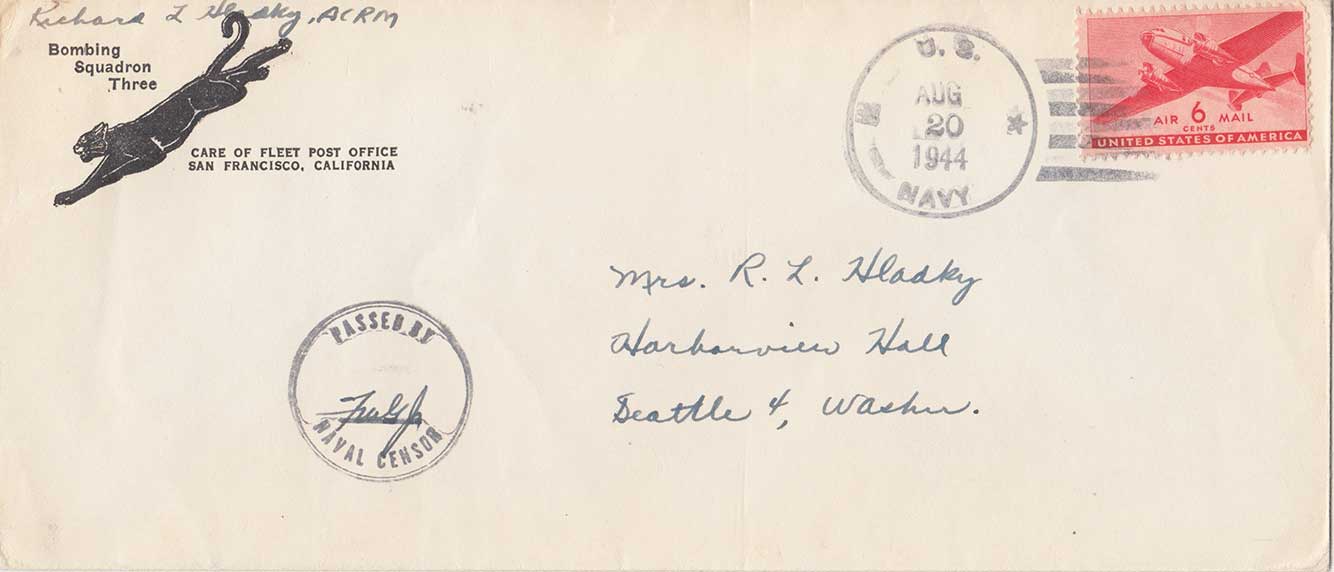 Richard L Hladky, ACRM
Bombing
Squadron
Three
CARE OF FLEET POST OFFICE
SAN FRANCISCO, CALIFORNIA
U. S.
AUG
20
1944
NAVY
AIR 6 MAIL
CENTS
UNITED STATES OF AMERICA
Mrs. R. L. Hladky
Harborview Hall
Seattle 4, Washn.
PASSED BY
NAVAL CENSOR